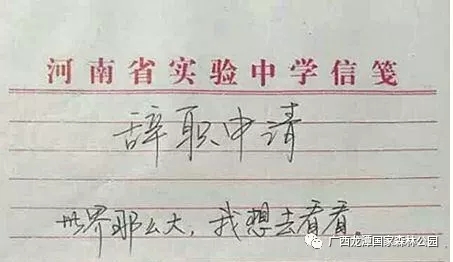 河南省实验中学信笺
辞职申请
世界那么大，我想去看看。
广西龙潭国家森林公园